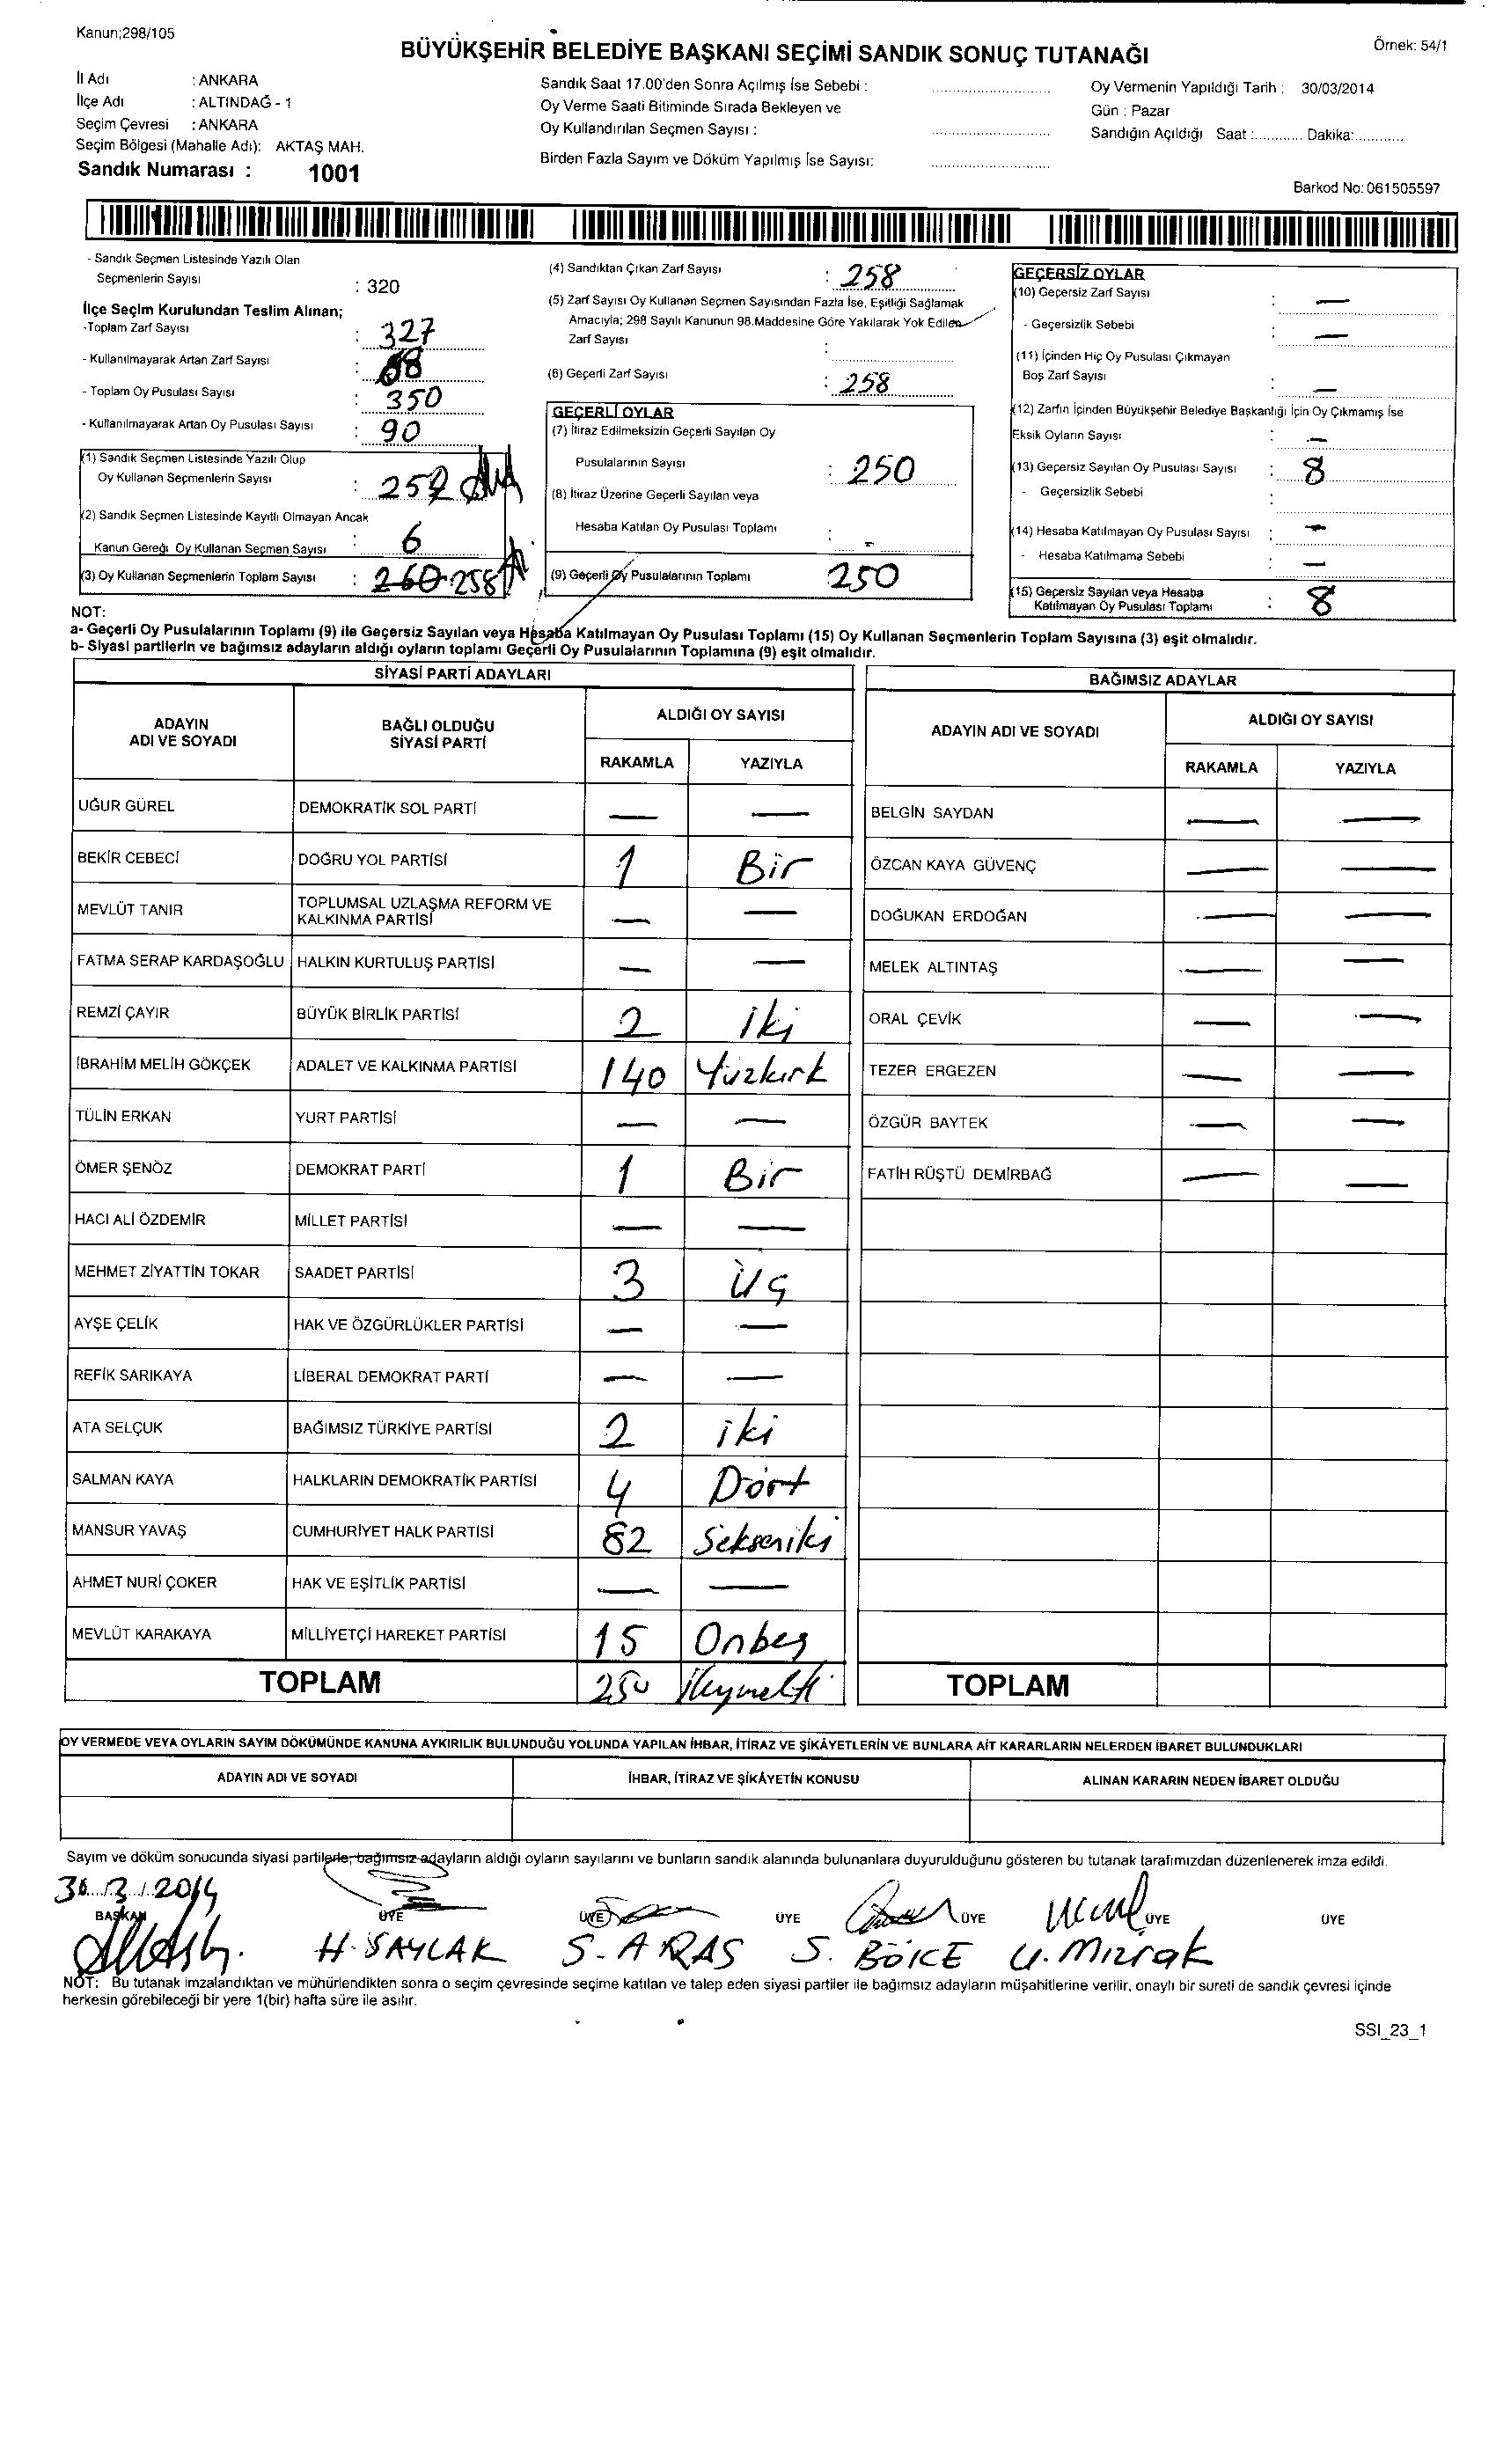 Kanun;298/105
BÜYÜKŞEHİR BELEDİYE BAŞKANI SEÇİMİ SANDIK SONUÇ TUTANAĞI
Örnek: 54/1
İl Adı : ANKARA
İlçe Adı : ALTINDAĞ - 1
Seçim Çevresi : ANKARA
Seçim Bölgesi (Mahalle Adı): AKTAŞ MAH.
Sandık Numarası : 1001
Sandık Saat 17.00'den Sonra Açılmış İse Sebebi :
Oy Verme Saati Bitiminde Sırada Bekleyen ve
Oy Kullandırılan Seçmen Sayısı :
Birden Fazla Sayım ve Döküm Yapılmış İse Sayısı:
Oy Vermenin Yapıldığı Tarih : 30/03/2014
Gün : Pazar
Sandığın Açıldığı Saat :............ Dakika:............
Barkod No: 061505597
- Sandık Seçmen Listesinde Yazılı Olan
Seçmenlerin Sayısı : 320
İlçe Seçim Kurulundan Teslim Alınan;
-Toplam Zarf Sayısı : 327
- Kullanılmayarak Artan Zarf Sayısı :
- Toplam Oy Pusulası Sayısı : 350
- Kullanılmayarak Artan Oy Pusulası Sayısı : 90
(1) Sandık Seçmen Listesinde Yazılı Olup
Oy Kullanan Seçmenlerin Sayısı :
(2) Sandık Seçmen Listesinde Kayıtlı Olmayan Ancak
Kanun Gereği Oy Kullanan Seçmen Sayısı : 6
(3) Oy Kullanan Seçmenlerin Toplam Sayısı : 260 258
(4) Sandıktan Çıkan Zarf Sayısı : 258
(5) Zarf Sayısı Oy Kullanan Seçmen Sayısından Fazla İse, Eşitliği Sağlamak
Amacıyla; 298 Sayılı Kanunun 98.Maddesine Göre Yakılarak Yok Edilen
Zarf Sayısı :
(6) Geçerli Zarf Sayısı : 258
GEÇERLİ OYLAR
(7) İtiraz Edilmeksizin Geçerli Sayılan Oy
Pusulalarının Sayısı : 250
(8) İtiraz Üzerine Geçerli Sayılan veya
Hesaba Katılan Oy Pusulası Toplamı : -
(9) Geçerli Oy Pusulalarının Toplamı 250
GEÇERSİZ OYLAR
(10) Geçersiz Zarf Sayısı : —
- Geçersizlik Sebebi : —
(11) İçinden Hiç Oy Pusulası Çıkmayan
Boş Zarf Sayısı : —
(12) Zarfın İçinden Büyükşehir Belediye Başkanlığı İçin Oy Çıkmamış İse
Eksik Oyların Sayısı : —
(13) Geçersiz Sayılan Oy Pusulası Sayısı : 8
- Geçersizlik Sebebi :
(14) Hesaba Katılmayan Oy Pusulası Sayısı : —
- Hesaba Katılmama Sebebi : —
(15) Geçersiz Sayılan veya Hesaba
Katılmayan Oy Pusulası Toplamı : 8
NOT:
a- Geçerli Oy Pusulalarının Toplamı (9) ile Geçersiz Sayılan veya Hesaba Katılmayan Oy Pusulası Toplamı (15) Oy Kullanan Seçmenlerin Toplam Sayısına (3) eşit olmalıdır.
b- Siyasi partilerin ve bağımsız adayların aldığı oyların toplamı Geçerli Oy Pusulalarının Toplamına (9) eşit olmalıdır.
SİYASİ PARTİ ADAYLARI
ADAYIN
ADI VE SOYADI
BAĞLI OLDUĞU
SİYASİ PARTİ
ALDIĞI OY SAYISI
RAKAMLA YAZIYLA
UĞUR GÜREL DEMOKRATİK SOL PARTİ — —
BEKİR CEBECİ DOĞRU YOL PARTİSİ 1 Bir
MEVLÜT TANIR TOPLUMSAL UZLAŞMA REFORM VE
KALKINMA PARTİSİ — —
FATMA SERAP KARDAŞOĞLU HALKIN KURTULUŞ PARTİSİ — —
REMZİ ÇAYIR BÜYÜK BİRLİK PARTİSİ 2 iki
İBRAHİM MELİH GÖKÇEK ADALET VE KALKINMA PARTİSİ 140 Yüzkırk
TÜLİN ERKAN YURT PARTİSİ — —
ÖMER ŞENÖZ DEMOKRAT PARTİ 1 Bir
HACI ALİ ÖZDEMİR MİLLET PARTİSİ — —
MEHMET ZİYATTİN TOKAR SAADET PARTİSİ 3 üç
AYŞE ÇELİK HAK VE ÖZGÜRLÜKLER PARTİSİ — —
REFİK SARIKAYA LİBERAL DEMOKRAT PARTİ — —
ATA SELÇUK BAĞIMSIZ TÜRKİYE PARTİSİ 2 iki
SALMAN KAYA HALKLARIN DEMOKRATİK PARTİSİ 4 Dört
MANSUR YAVAŞ CUMHURİYET HALK PARTİSİ 82 Sekseniki
AHMET NURİ ÇOKER HAK VE EŞİTLİK PARTİSİ — —
MEVLÜT KARAKAYA MİLLİYETÇİ HAREKET PARTİSİ 15 Onbeş
TOPLAM 250
BAĞIMSIZ ADAYLAR
ADAYIN ADI VE SOYADI
ALDIĞI OY SAYISI
RAKAMLA YAZIYLA
BELGİN SAYDAN — —
ÖZCAN KAYA GÜVENÇ — —
DOĞUKAN ERDOĞAN — —
MELEK ALTINTAŞ — —
ORAL ÇEVİK — —
TEZER ERGEZEN — —
ÖZGÜR BAYTEK — —
FATİH RÜŞTÜ DEMİRBAĞ — —
TOPLAM
OY VERMEDE VEYA OYLARIN SAYIM DÖKÜMÜNDE KANUNA AYKIRILIK BULUNDUĞU YOLUNDA YAPILAN İHBAR, İTİRAZ VE ŞİKÂYETLERİN VE BUNLARA AİT KARARLARIN NELERDEN İBARET BULUNDUKLARI
ADAYIN ADI VE SOYADI İHBAR, İTİRAZ VE ŞİKÂYETİN KONUSU ALINAN KARARIN NEDEN İBARET OLDUĞU
Sayım ve döküm sonucunda siyasi partilerle, bağımsız adayların aldığı oyların sayılarını ve bunların sandık alanında bulunanlara duyurulduğunu gösteren bu tutanak tarafımızdan düzenlenerek imza edildi.
30../.3../.2014
BAŞKAN ÜYE ÜYE ÜYE ÜYE ÜYE ÜYE
H. SAYLAK S. ARAS S. BÖİCE U. Mızrak
NOT: Bu tutanak imzalandıktan ve mühürlendikten sonra o seçim çevresinde seçime katılan ve talep eden siyasi partiler ile bağımsız adayların müşahitlerine verilir, onaylı bir sureti de sandık çevresi içinde
herkesin görebileceği bir yere 1(bir) hafta süre ile asılır.
SSI_23_1